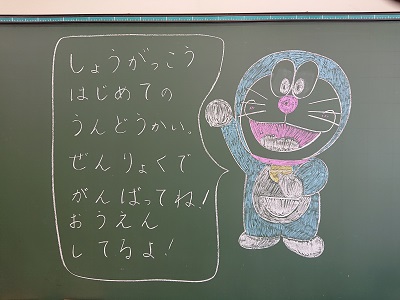 しょうがっこう
はじめての
うんどうかい。
ぜんりょくで
がんばってね!
おうえん
してるよ!